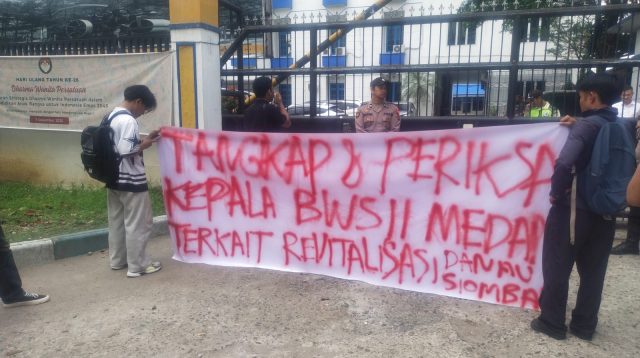 HARI ULANG TAHUN KE-25
Dharma Wanita Persatuan
TANGKAP & PERIKSA
KEPALA BWS II MEDAN
TERKAIT REVITALISASI DANAU
SIOMBA